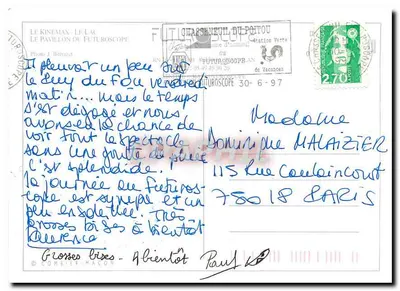 LE KINEMAX - LE LAC
LE PAVILLON DU FUTUROSCOPE
CHASSENEUIL DU POITOU
FUTUROSCOPE
de Vacances
FUTUROSCOPE 30-6-97
2,70
Il pleuvait un peu sur
le Puy du Fou vendredi
matin... mais le temps
s'est dégagé et nous
avons eu la chance de
voir tout le spectacle
sans une goutte de pluie
C'est splendide !
La journée au Futuros-
cope est sympa et un
peu ensoleillée. Très
grosses bises à bientôt
Laurence
Grosses bises - A bientôt Paul
Madame
Dominique MALAIZIER
115 Rue Caulaincourt
75018 PARIS